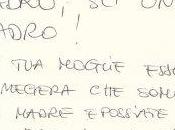 LADRO, SEI UN
LADRO!
TUA MOGLIE ESSE
MEGERA CHE SONO
MADRE E POSSIATE